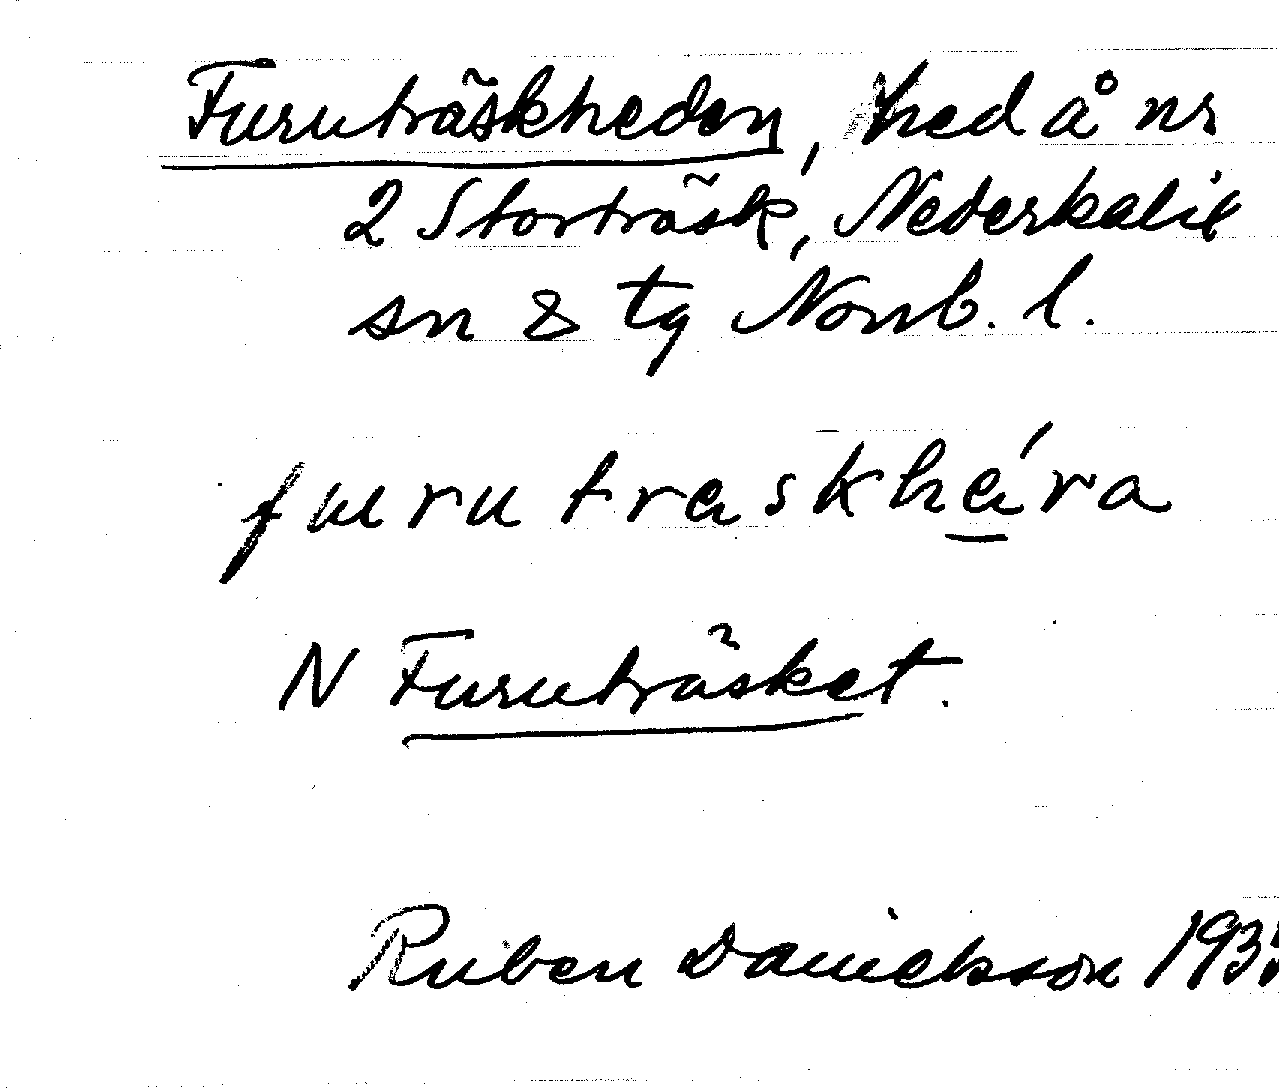 Furuträskheden, hed å nr
2 Storträsk, Nederkalix
sn & tg Norrb. l.
furutraskhéra
N Furuträsket.
Ruben Danielsson